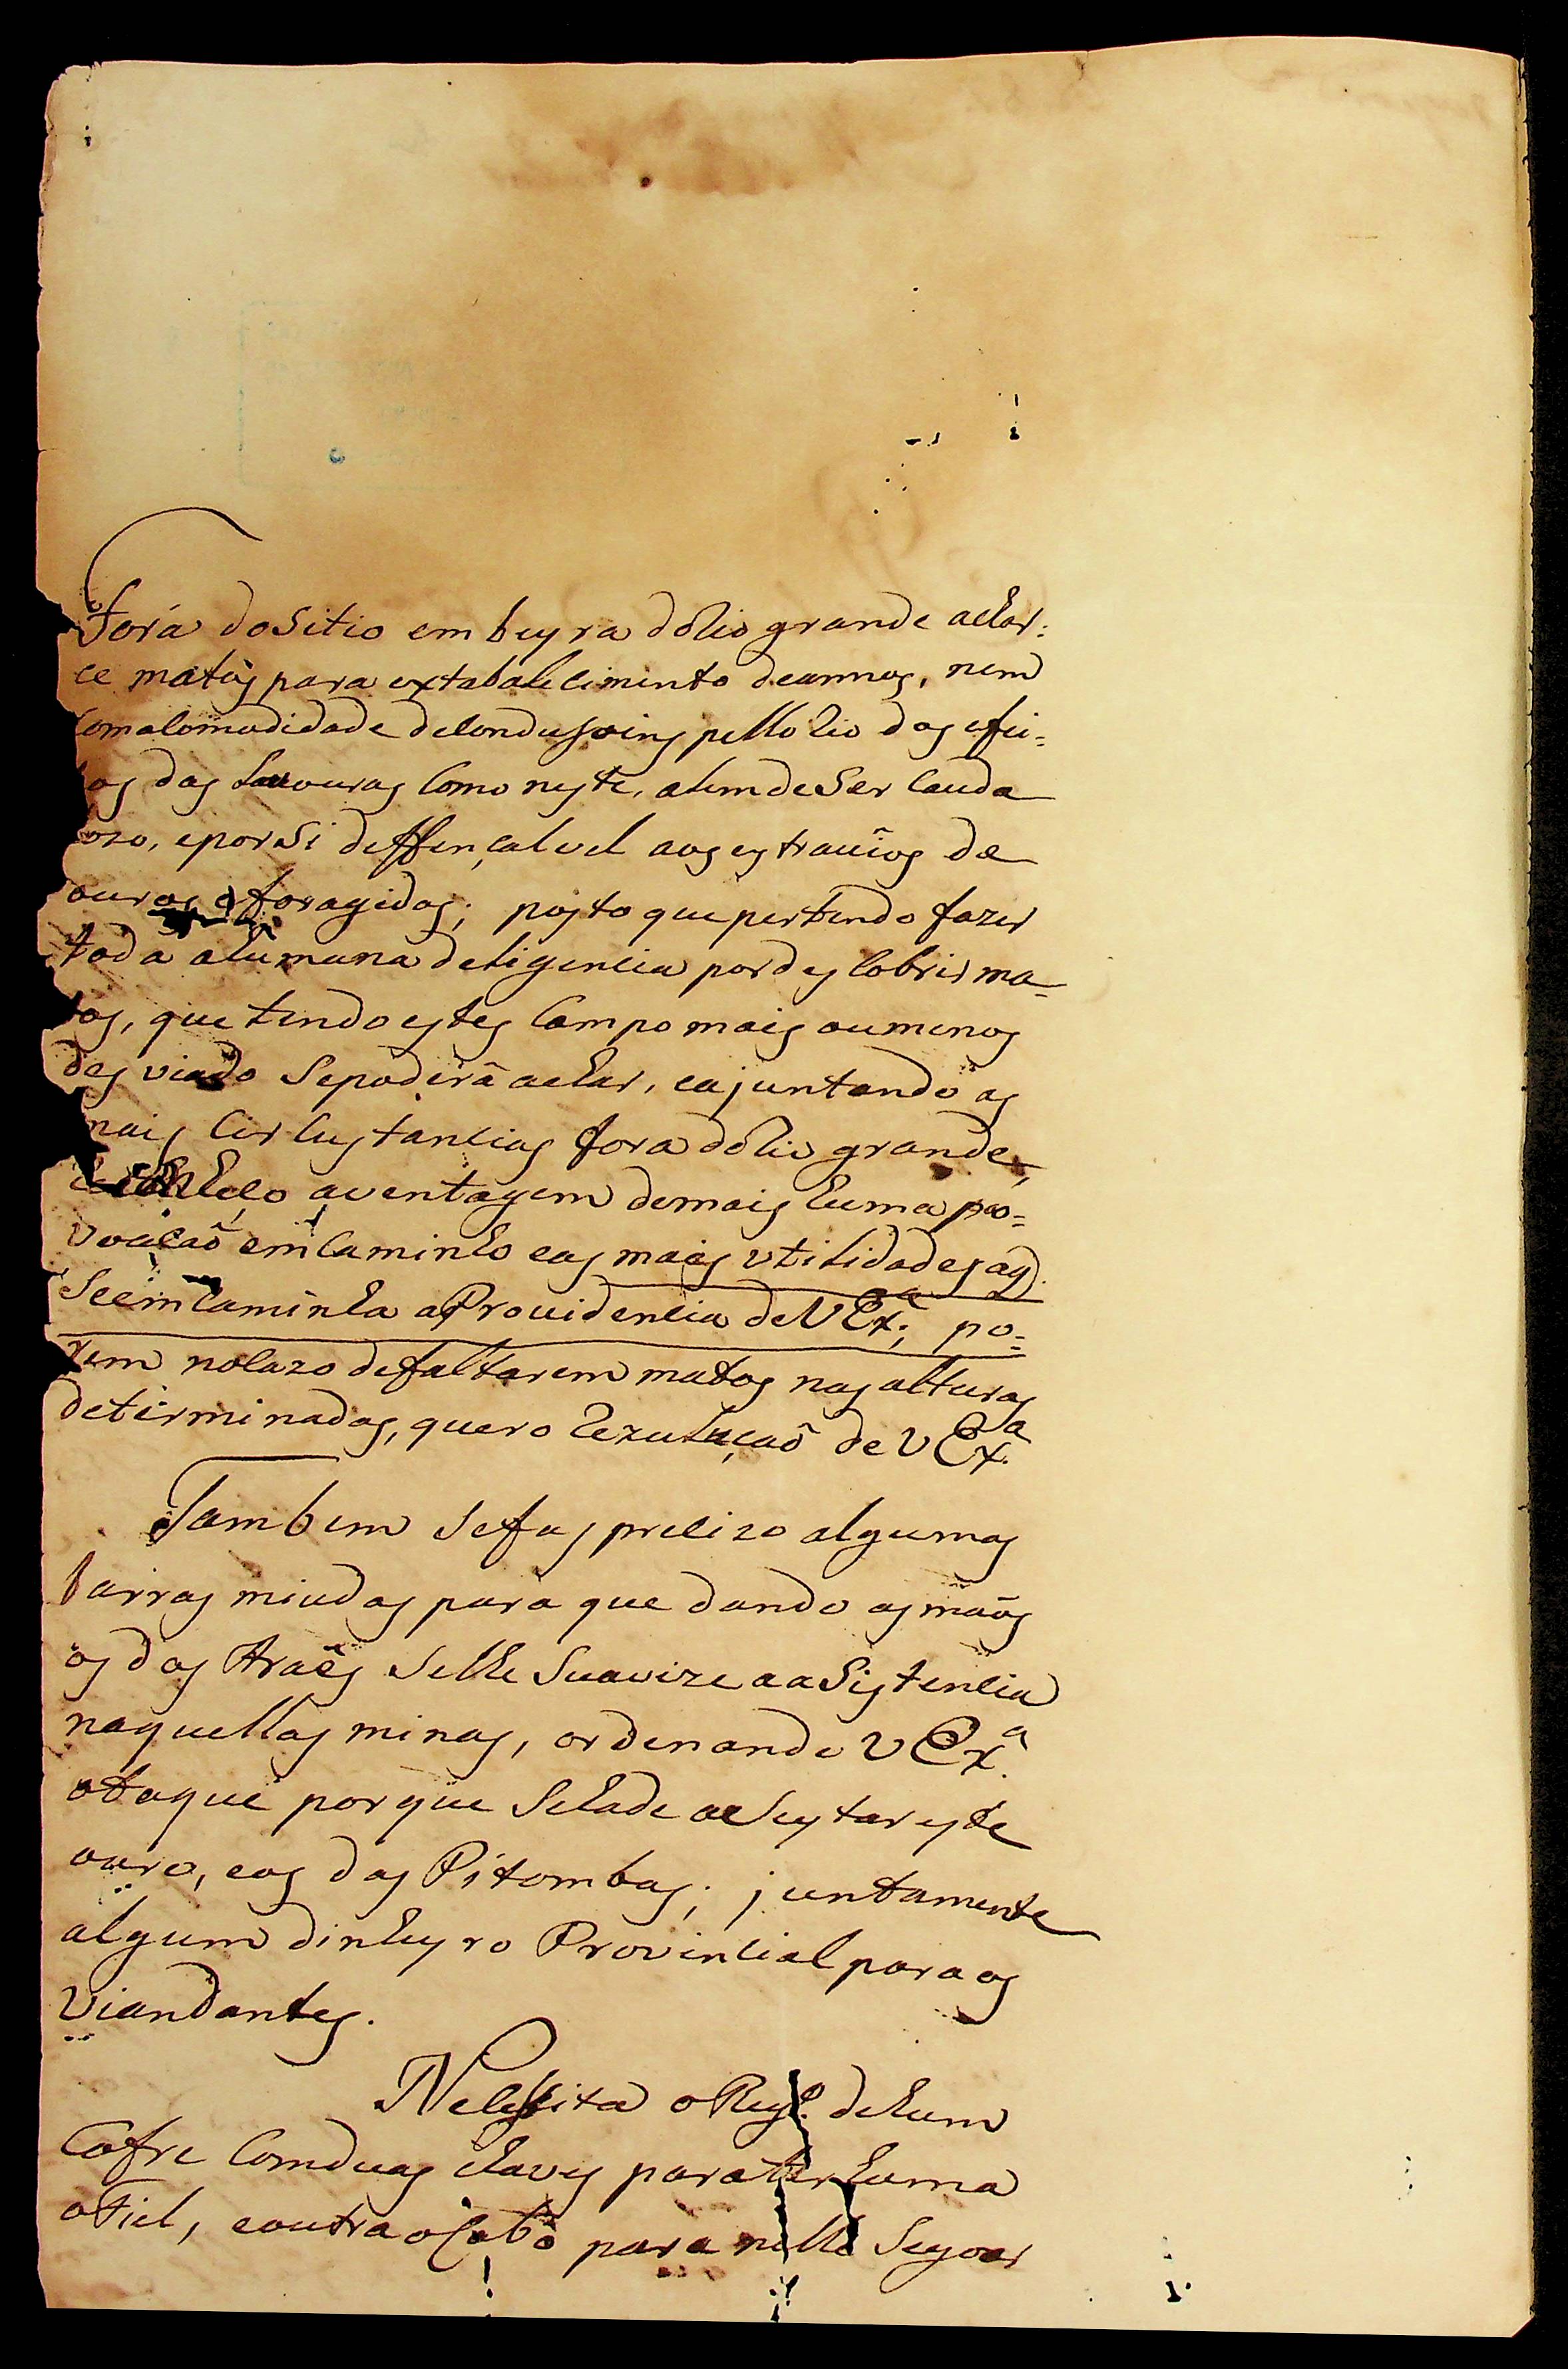 Fora do Sitio em beyra do Rio grande achar:
ce matos para extabalecimento de annos, nem
Com a Comudidade de Condusoins pello Rio dos efei=
os das Lavouras Como neste, alem de Ser Cauda
ozo, e por Si deffençalvel aos estravios de
ouros e foragidos; posto que pertendo fazer
toda a humana deligencia por descobrir ma=
tos, que tendo estes Campo mais ou menos
desviado Se poderá achar, e ajuntando as
mais Circustancias fora do Rio grande,
aventagem de mais huma poo=
voacaõ em Caminho e as mais utilidades a q
Se emCaminha a Providencia de V Exª; po=
rem no Cazo de faltarem matos nas alturas
detirminadas, quero Rezuluçaõ de V Exª
Tambem Se fas precizo algumas
barras miudas para que dando as maõs
os dos Araés Se lhe Suavize a aSistencia
naquellas minas, ordenando V Exª
otaque porque Se hade aCeytar este
ouro, e os das Pitombas; juntamente
algum dinheyro Provincial para os
Viandantes.
NeceSsita o Regº de hum
Cofre Com duas chaves para ter huma
o Fiel, e outra o Cabo para nelle Segoar